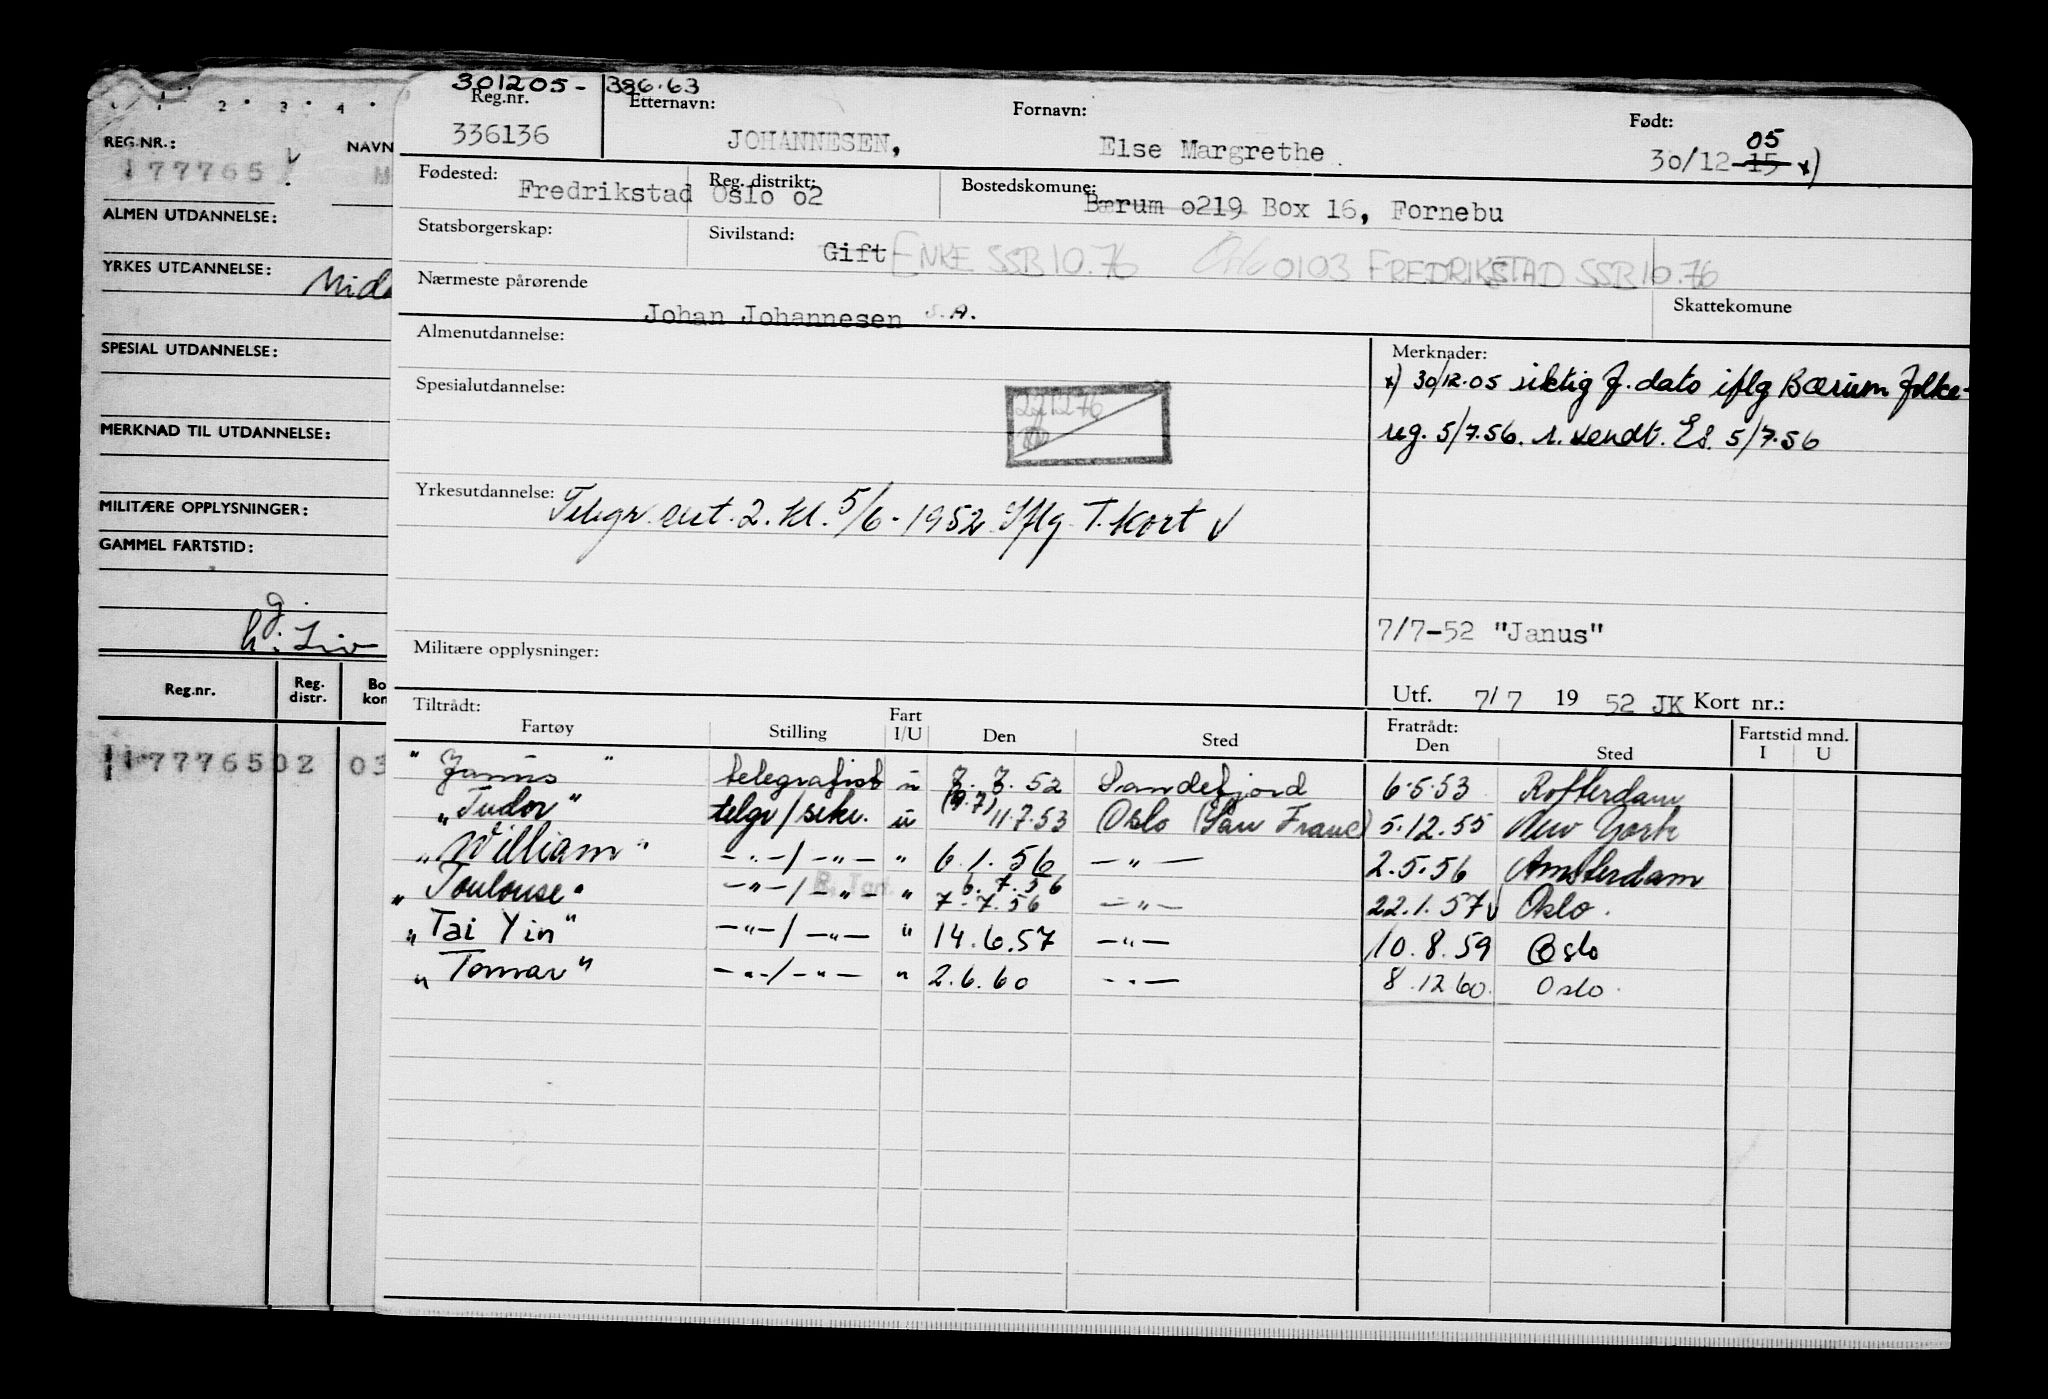 301205- 386.63
Reg.nr. Etternavn: Fornavn: Født:
336136 JOHANNESEN, Else Margrethe 30/12-15 05 x)
Fødested: Reg. distrikt: Bostedskomune:
Fredrikstad Oslo o2 Bærum o219 Box 16, Fornebu
Statsborgerskap: Sivilstand:
Gift ENKE SSB 10.76 Oslo 0103 FREDRIKSTAD SSB 10.76
Nærmeste pårørende Skattekomune
Johan Johannesen S.A.
Almenutdannelse: Merknader:
x) 30/12.05 riktig f. dato iflg Bærum folke-
Spesialutdannelse:
reg. 5/7.56. s. sendt. Es. 5/7.56
Yrkesutdannelse: Telegr. sert. 2. kl. 5/6-1952 Iflg. T. Kort √
7/7-52 "Janus"
Militære opplysninger:
Utf. 7/7 1952 JK Kort nr.:
Tiltrådt: Fratrådt: Fartstid mnd.
Fartøy Stilling Fart I/U Den Sted Den Sted I U
"Janus" telegrafist u 7.7.52 Sandefjord 6.5.53 Rotterdam
"Tudor" telgr/sekr. u (9.7) 11.7.53 Oslo (San Franc) 5.12.55 New York
"William" -"-/-"- " 6.1.56 -"- 2.5.56 Amsterdam
"Toulouse" -"-/-"- " 6.7.56
7.7.56 -"- 22.1.57 √ Oslo.
"Tai Yin" -"-/-"- " 14.6.57 -"- 10.8.59 Oslo
"Tomar" -"-/-"- " 2.6.60 -"- 8.12 60. Oslo.
1 2 3 4
REG.NR.: NAVN
177765 √ M
ALMEN UTDANNELSE:
YRKES UTDANNELSE:
SPESIAL UTDANNELSE:
MERKNAD TIL UTDANNELSE:
MILITÆRE OPPLYSNINGER:
GAMMEL FARTSTID:
g.
h. Liv
Reg.nr. Reg. distr. Bo kon
177765 02 03